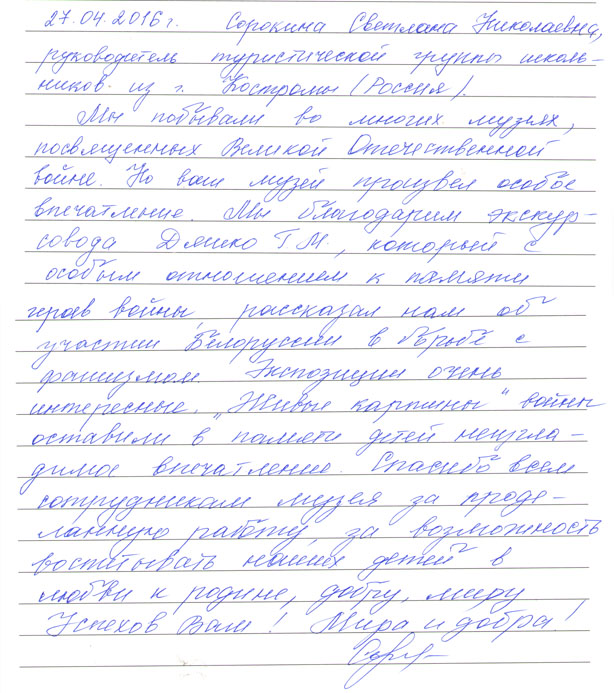 27.04.2016г. Сорокина Светлана Николаевна,
руководитель туристической группы школь-
ников из г. Костромы (Россия).
Мы побывали во многих музеях,
посвященных Великой Отечественной
войне. Но ваш музей произвел особое
впечатление. Мы благодарим экскур-
совода Дяшко Г М., который с
особым отношением к памяти
героев войны, рассказал нам об
участии Белоруссии в борьбе с
фашизмом. Экспозиции очень
интересные. „Живые картины" войны
оставили в памяти детей неизгла-
димое впечатление. Спасибо всем
сотрудникам музея за проде-
ланную работу, за возможность
воспитывать наших детей в
любви к родине, добру, миру.
Успехов Вам! Мира и добра!